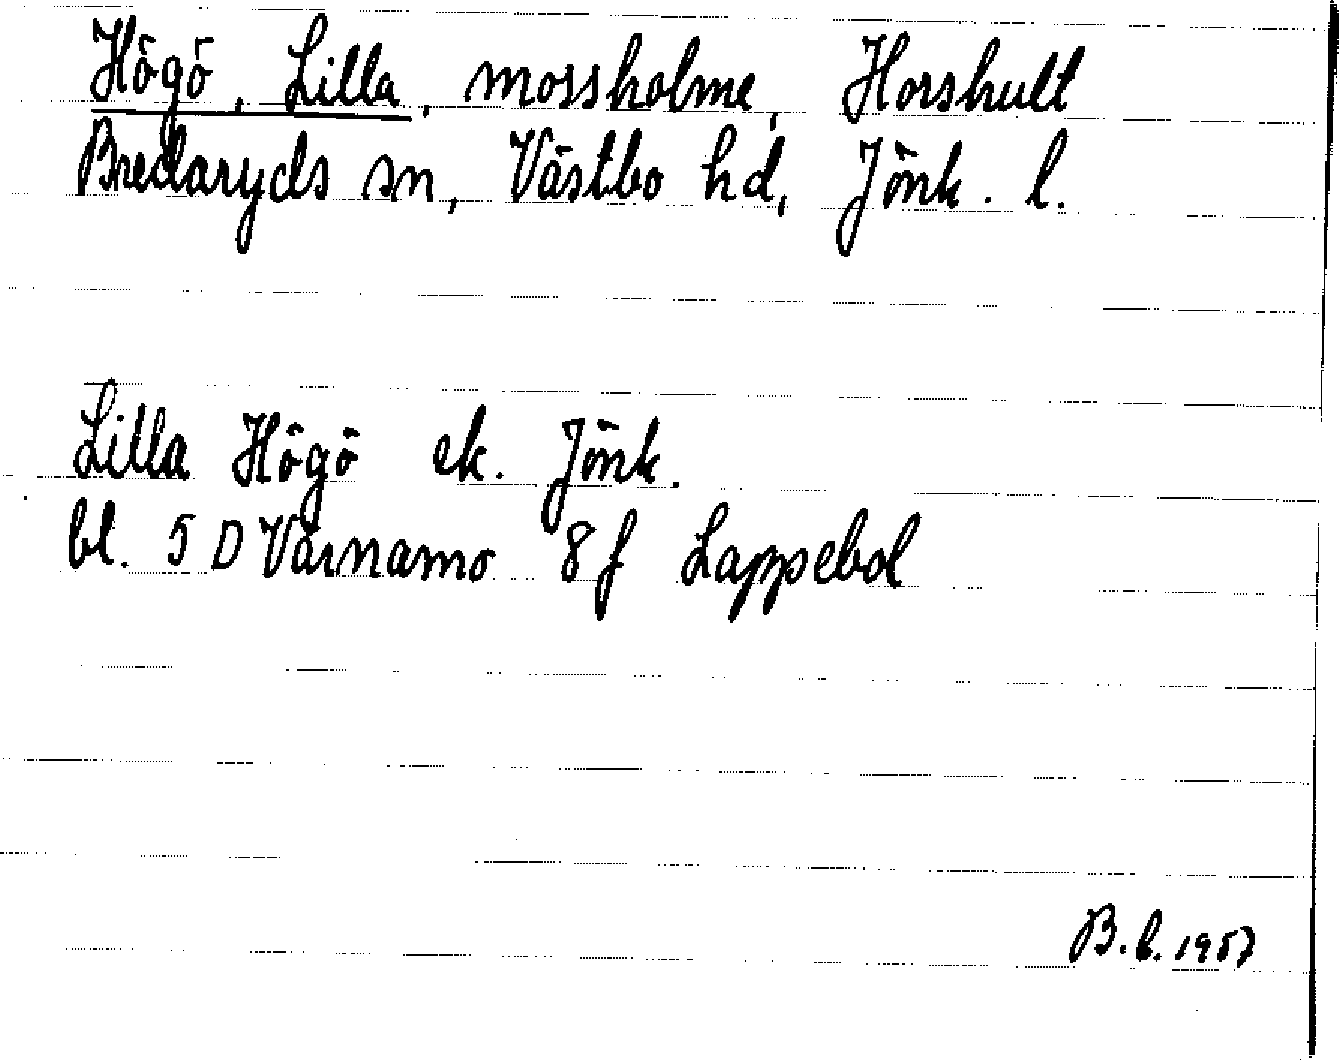 Högö, Lilla, mossholme, Horshult
Bredaryds sn, Västbo hd, Jönk. l.
Lilla Högö ek. Jönk.
bl. 5 D Värnamo 8f Lappebol
B.b. 1957